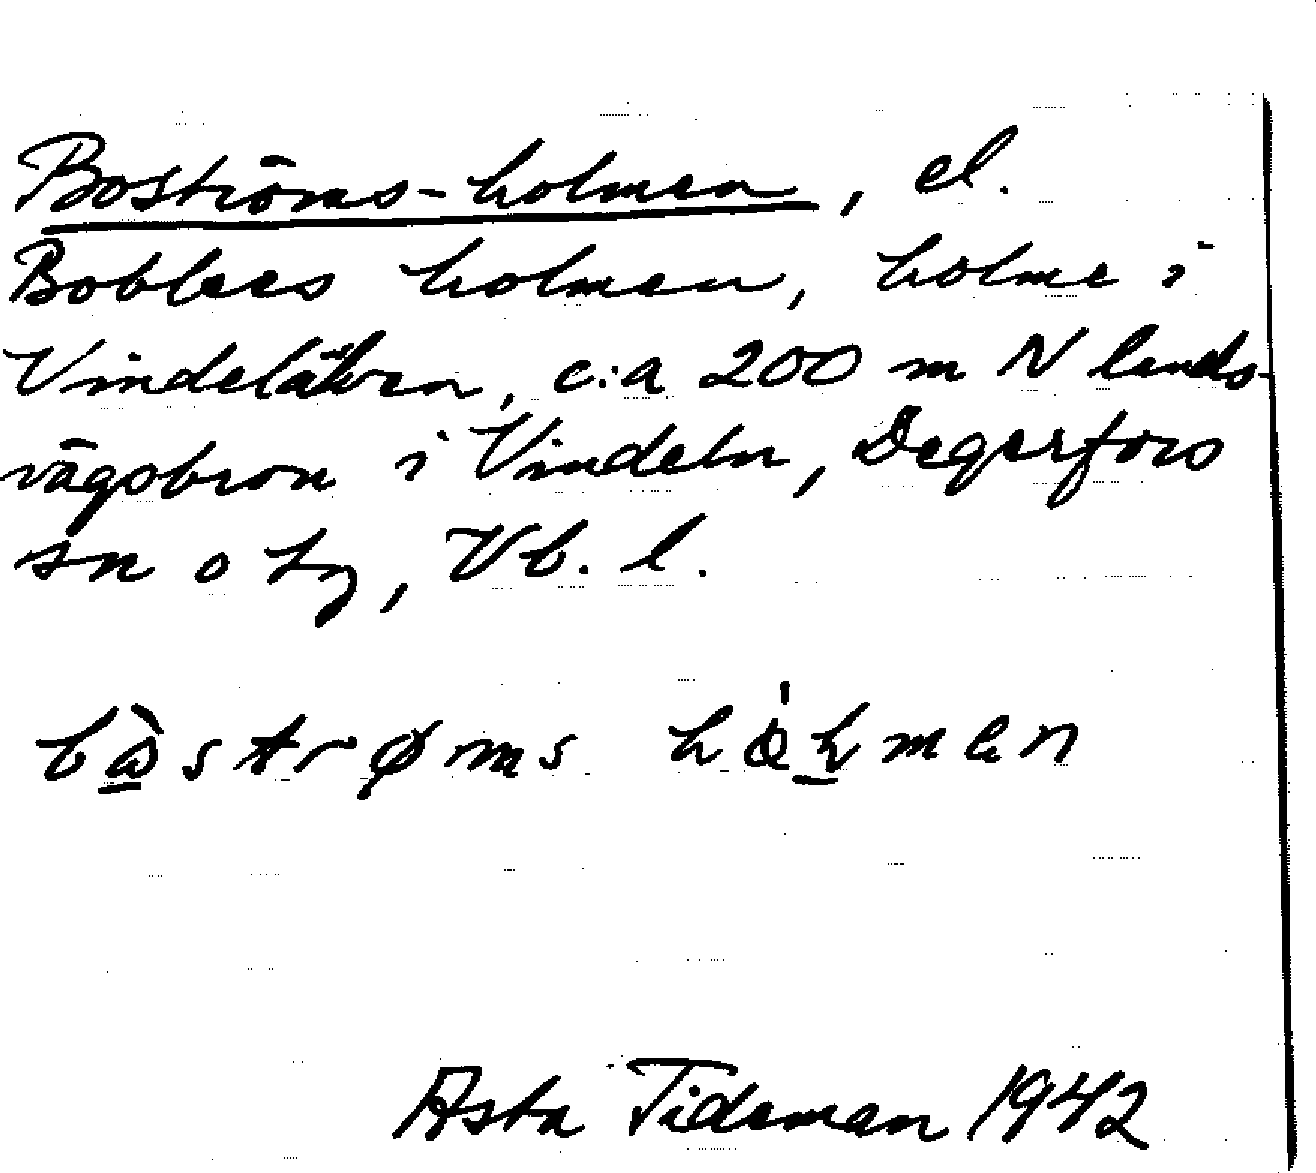 Boströms-holmen, el.
Boblees holmen, holme i
Vindelälven, c:a 200 m N lands-
vägsbron i Vindeln, Degerfors
sn o tg, Vb. l.
holmen
Asta Tideman 1942